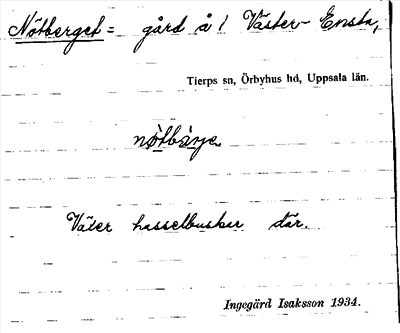 Nötberget = gård å 1 Väster-Ensta,
Tierps sn, Örbyhus hd, Uppsala län.
nötbärje
Växer hasselbuskar där.
Ingegärd Isaksson 1934.